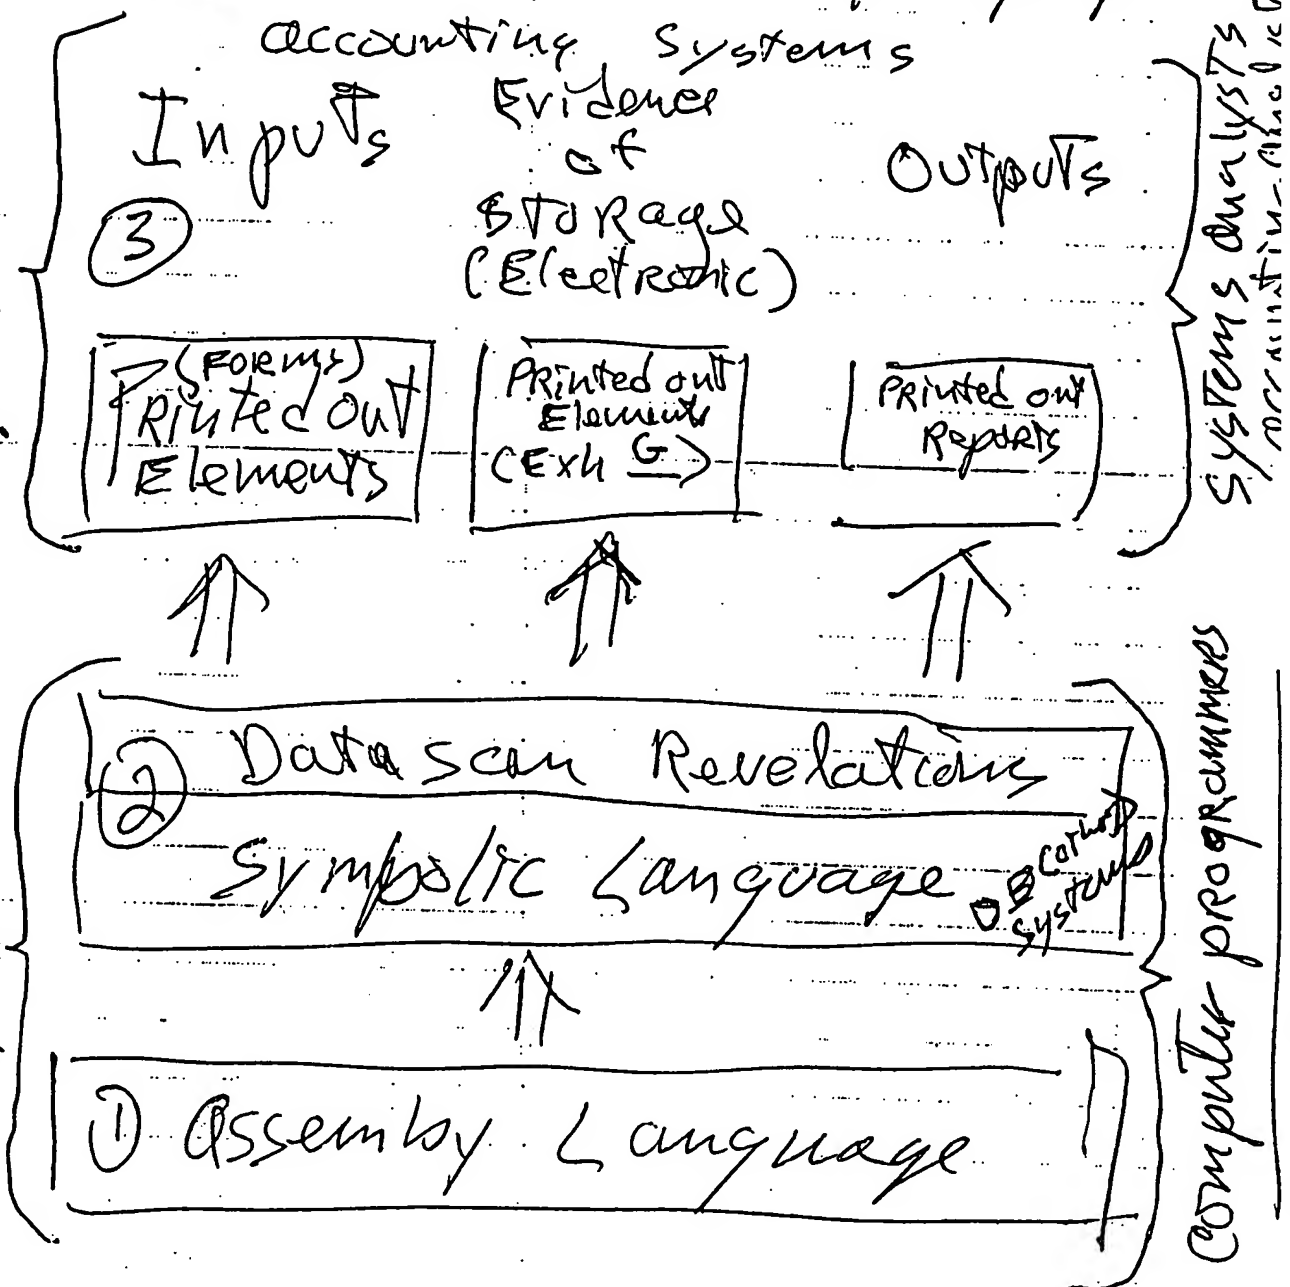 accounting Systems
Inputs
Evidence
of
Storage
(Electronic)
Outputs
③
(Forms)
Printed out
Elements
Printed out
Elements
(Exh G)
Printed out
Reports
Systems analysts
② Datascan Revelations
Symbolic Language
Systems
① assembly Language
Computer programmers